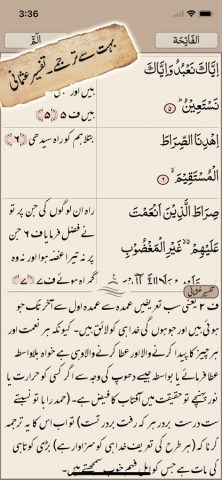 3:36
الٓمّٓ
الْفَاتِحَة
بہت سے ترجمے۔ تفسیر عثمانی
اِيَّاكَ نَعْبُدُ وَاِيَّاكَ
نَسْتَعِيْنُ ﴿۵﴾
بیں اور
ہیں ف ۵ ﴿۵﴾
اِهْدِنَا الصِّرَاطَ
الْمُسْتَقِيْمَ ﴿۶﴾
بتلا ہم کو راہ سیدھی ﴿۶﴾
صِرَاطَ الَّذِيْنَ اَنْعَمْتَ
عَلَيْهِمْ غَيْرِ الْمَغْضُوْبِ
راہ ان لوگوں کی جن پر تو
نے فضل فرمایا ف ۶ جن
پر نہ تیرا غصہ ہوا اور نہ وہ
گمراہ ہوئے ف ۷ ﴿۷﴾
تفسیر عثمانی
ف ۲ یعنی سب تعریفیں عمدہ سے عمدہ اول سے آخر تک جو
ہوئی ہیں اور جو ہوں گی خدا ہی کو لائق ہیں۔ کیونکہ ہر نعمت اور
ہر چیز کا پیدا کرنے والا اور عطا کرنے والا وہی ہے خواہ بلاواسطہ
عطا فرمائے یا بواسطہ جیسے دھوپ کی وجہ سے اگر کسی کو حرارت یا
نور پہنچے تو حقیقت میں آفتاب کا فیض ہے۔ (حمد را با تو نسبتے
ست درست بر در ہر کہ رفت بر در تست) تو اب اس کا یہ ترجمہ
کرنا کہ (ہر طرح کی تعریف خدا ہی کو سزاوار ہے) بڑی کوتاہی
کی بات ہے جس کو اہل فہم خوب سمجھتے ہیں۔